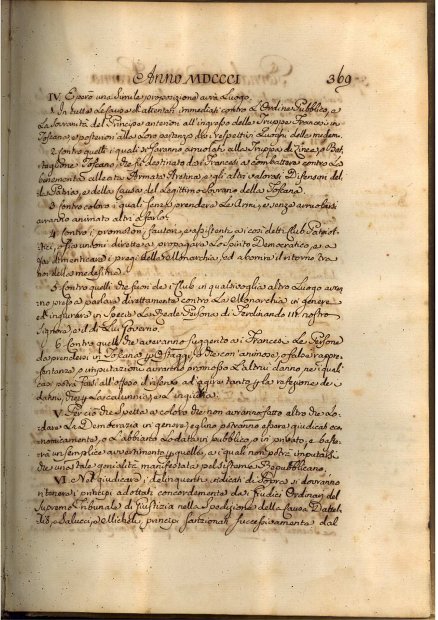 Anno MDCCCI 369
IV. E però una simile proposizione avrà Luogo
1 In tutte le Cause di attentati immediati contro L'Ordine Pubblico, e
La Sovranità del Principe anteriori all'ingresso delle Truppe Francesi in
Toscana, e posteriori alla Loro partenza dai respettivi Luoghi della medem.
2 Contro quelli i quali si saranno arruolati alla Truppa di Linea, o Bat-
taglione Toscano, che fu destinato da' Francesi a combattere contro La
benemerita Armata Aretina e gli altri valorosi Difensori del-
la Patria, e della Causa del Legittimo Sovrano della Toscana.
3 Contro coloro i quali senza prendere Le Armi, e senza arruolarsi
avranno animato altri a farlo.
4 Contro i promotori, fautori, e assistenti ai così detti Club Patriot-
tici, o Giuntoni diretti a propagare Lo Spirito Democratico, e a
far dimenticare i pregi della Monarchia, ed aborrire il ritorno
della medesima
5 Contro quelli che fuori de' Club in qualsivoglia altro Luogo avran-
no preso a parlare direttamente contro La Monarchia in genere
ed insultare in Specie La Persona di Ferdinando III nostro
Signore, e di Lui Governo.
6. Contro quelli che avevano suggerito ai Francesi Le Persone
da prendersi in Toscana in Ostaggi, o che con animose, o false rappre-
sentanze o imputazioni avranno promosso L'altrui danno nei quali
casi potrà farsi all'offeso di agire tanto per la refezione dei
danni, che per Le calunnie, e in
V. Perciò che spetta a coloro che non avranno fatto altro che Lo-
dare La Democrazia in genere, eglino potranno essere giudicati eco-
nomicamente, o L'abbiano Lodata in pubblico, o in privato, e baste-
rà un semplice avvertimento per quelli, a i quali non potrà imputarsi
che una tale genialità manifestata pel Sistema Repubblicano.
VI. Nel giudicare i delinquenti indicati di Sopra si dovranno
ritenere i principi adottati concordemente da' Giudici Ordinarj del
Supremo Tribunale di Giustizia nella Spedizione della Causa
e Micheli, principi sanzionati successivamente dal